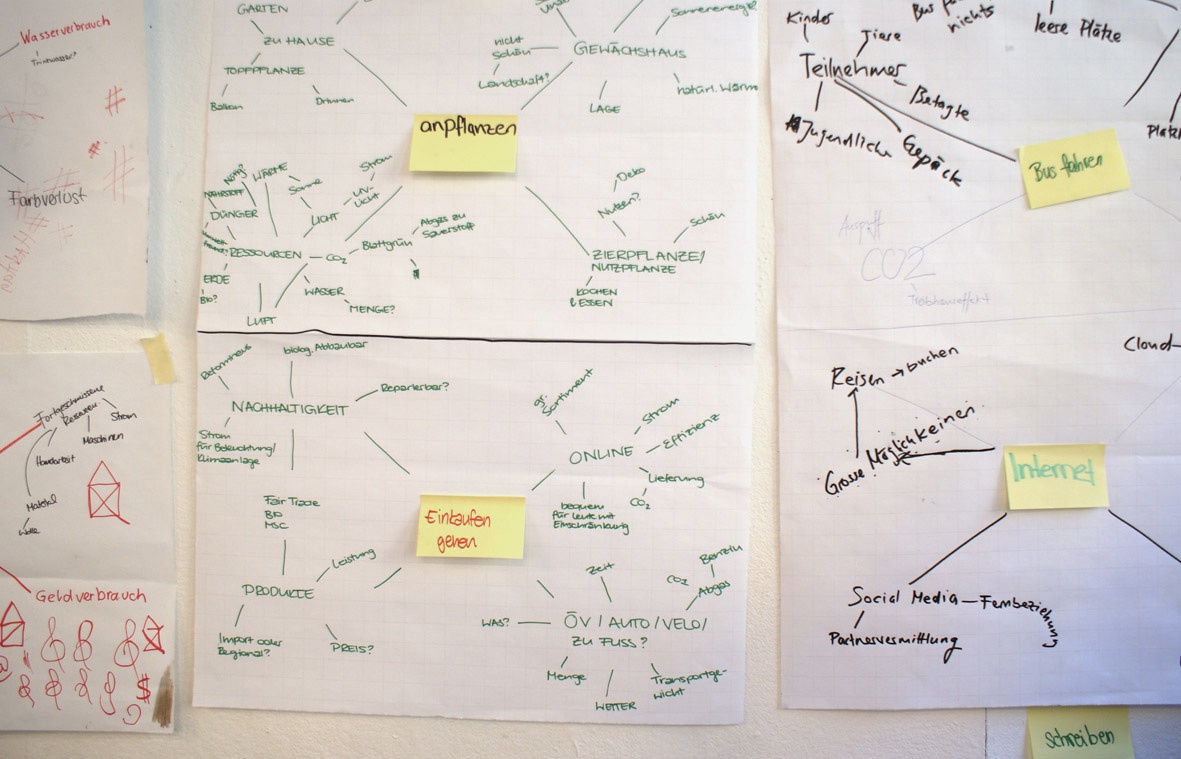 Wasserverbrauch
Trinkwasser?
Farbverlust
Fortgeschrittene
Ressourcen
Strom
Maschinen
Handarbeit
Material
Wolle
Geldverbrauch
$
GARTEN
ZU HAUSE
TOPFPFLANZE
Balkon
Drinnen
Sonnenenergie
nicht
schön
GEWÄCHSHAUS
Landschaft?
natürl. Wärme
LAGE
anpflanzen
Strom
WÄRME
Sonne
UV-
Licht
NÄHRSTOFF
DÜNGER
LICHT
Abgas zu
Sauerstoff
Blattgrün
RESSOURCEN
CO2
ERDE
Bio?
WASSER
MENGE?
LUFT
Deko
Nutzen?
Schön
ZIERPFLANZE/
NUTZPFLANZE
KOCHEN
& ESSEN
Reformhaus
biolog. Abbaubar
Reparierbar?
NACHHALTIGKEIT
Strom
für Beleuchtung/
Klimaanlage
Fair Trade
BIO
MSC
Leistung
PRODUKTE
Import oder
Regional?
PREIS?
Einkaufen
gehen
gr.
Sortiment
Strom
Effizienz
ONLINE
Lieferung
CO2
bequem
für Leute mit
Einschränkung
Zeit
CO2
Benzin
Abgas
WAS?
ÖV / AUTO / VELO /
ZU FUSS?
Menge
Transportge-
wicht
WETTER
Kinder
Tiere
Bus
nichts
leere Plätze
Teilnehmer
Betagte
Jugendliche
Gepäck
Bus fahren
Auspuff
CO2
Treibhauseffekt
Cloud
Reisen → buchen
Grosse Möglichkeinen
Internet
Social Media — Fernbeziehung
Partnervermittlung
schreiben